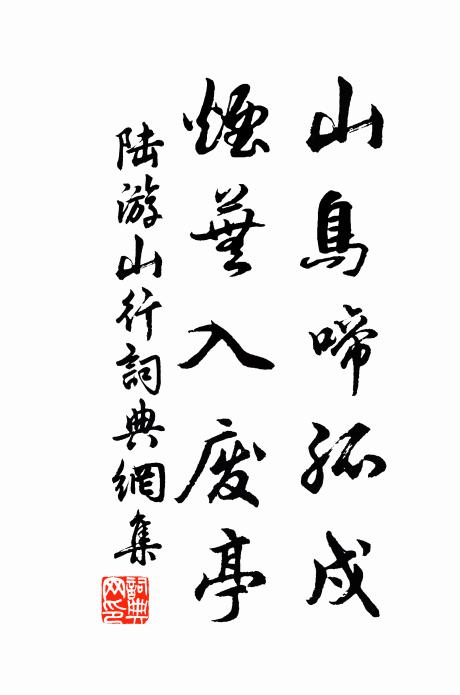 山鳥啼孤戍
煙蕪入廢亭
陆游山行詞典網集
詞典网印